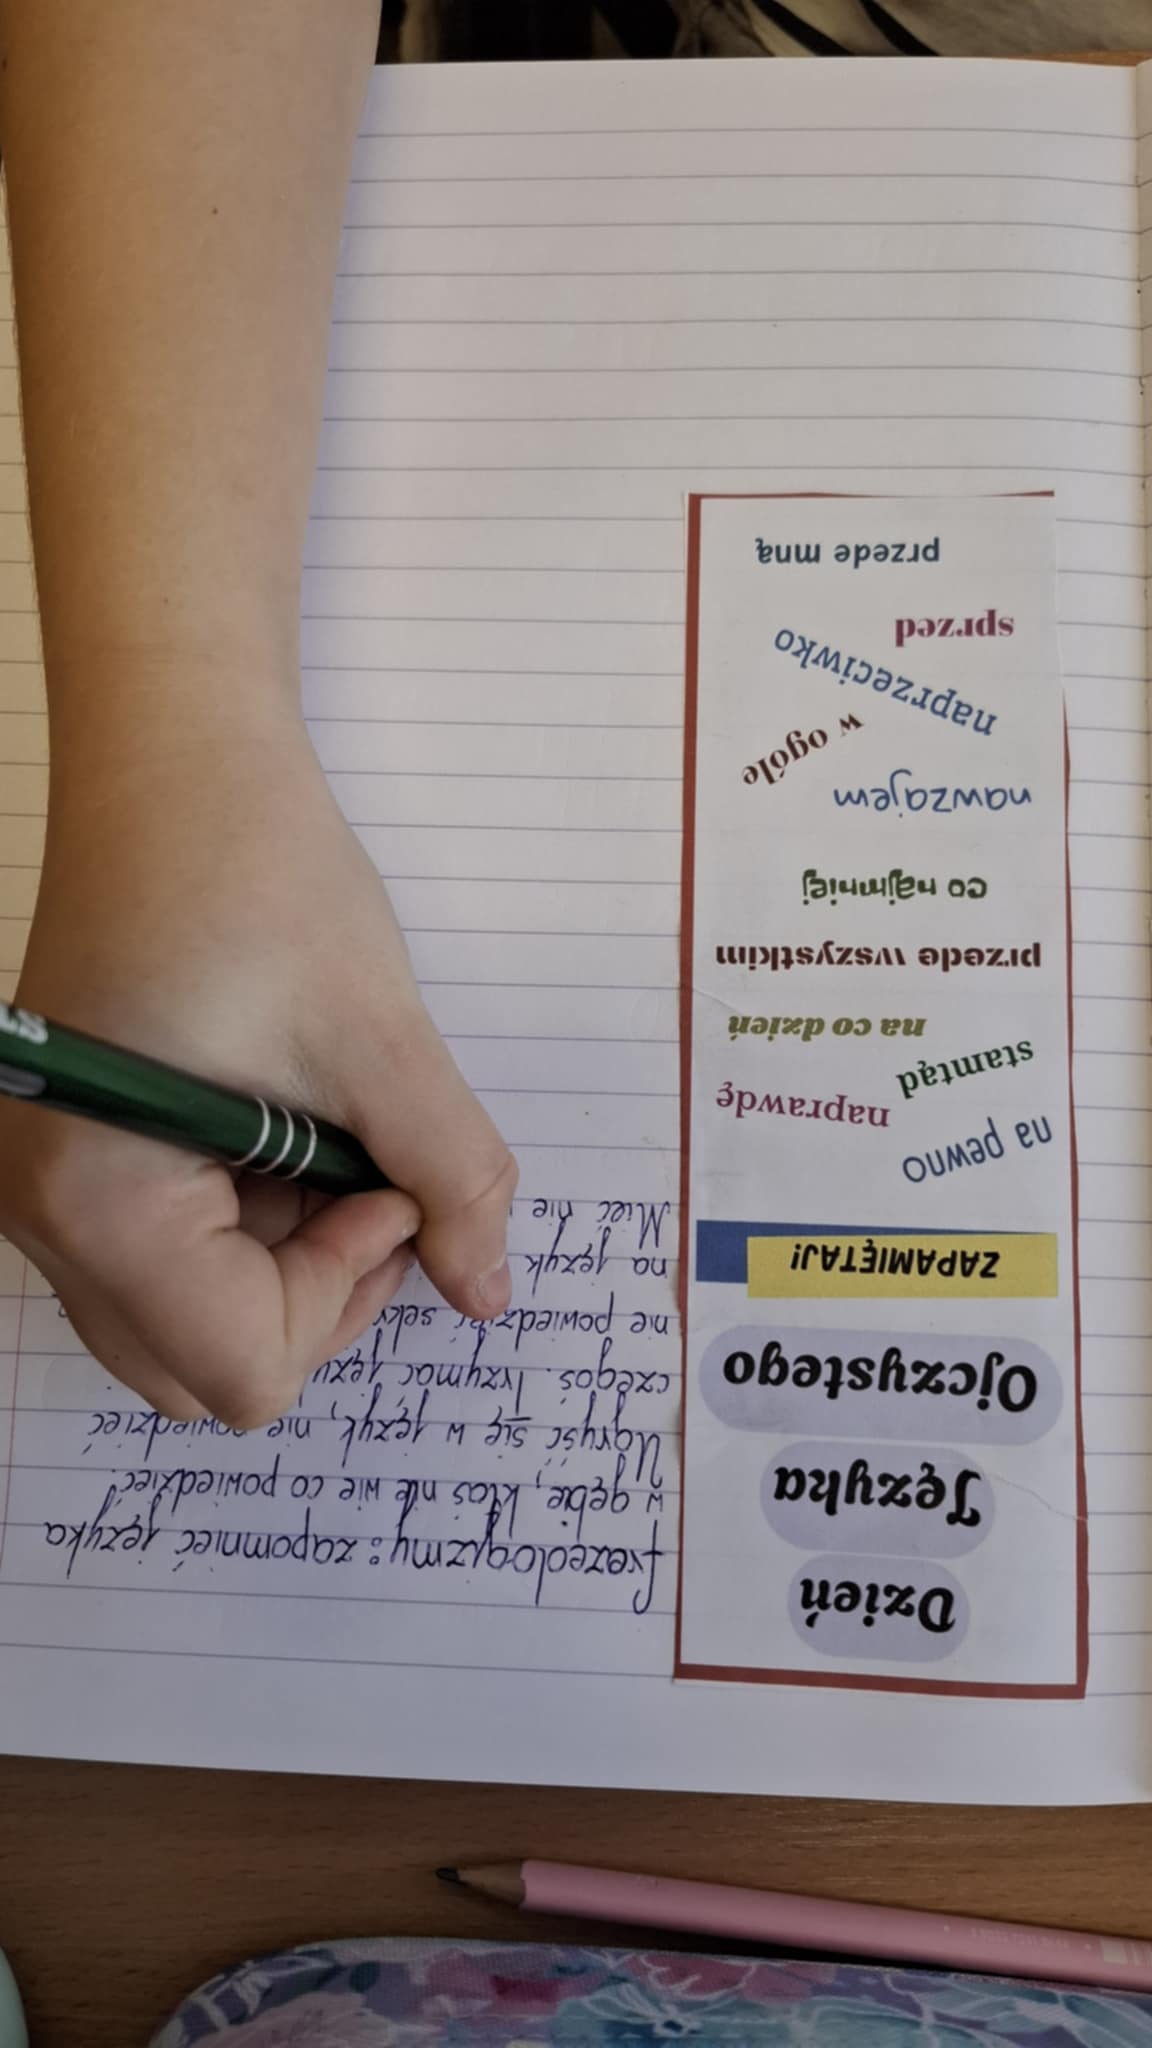 Dzień
Języka
Ojczystego
ZAPAMIĘTAJ!
na pewno
naprawdę
stamtąd
na co dzień
przede wszystkim
co najmniej
nawzajem
w ogóle
naprzeciwko
sprzed
przede mną
frezeologizmy: zapomnieć języka
w gębie, ktoś nie wie co powiedzieć.
Ugryść się w język, nie powiedzieć
czegoś. Trzymać
nie powiedzieć
na język
Mieć nie